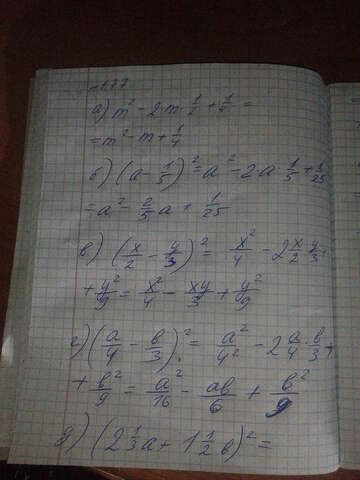 а) m² - 2·m·1/2 + 1/4 =
= m² - m + 1/4
б) (a - 1/5)² = a² - 2·a·1/5 + 1/25
= a² - 2/5 a + 1/25
в) (x/2 - y/3)² = x²/4 - 2 x/2·y/3 +
+ y²/9 = x²/4 - xy/3 + y²/9
г) (a/4 - b/3)² = a²/4² - 2 a/4·b/3 +
+ b²/9 = a²/16 - ab/6 + b²/9
д) (2 1/3 a + 1 1/2 b)² =